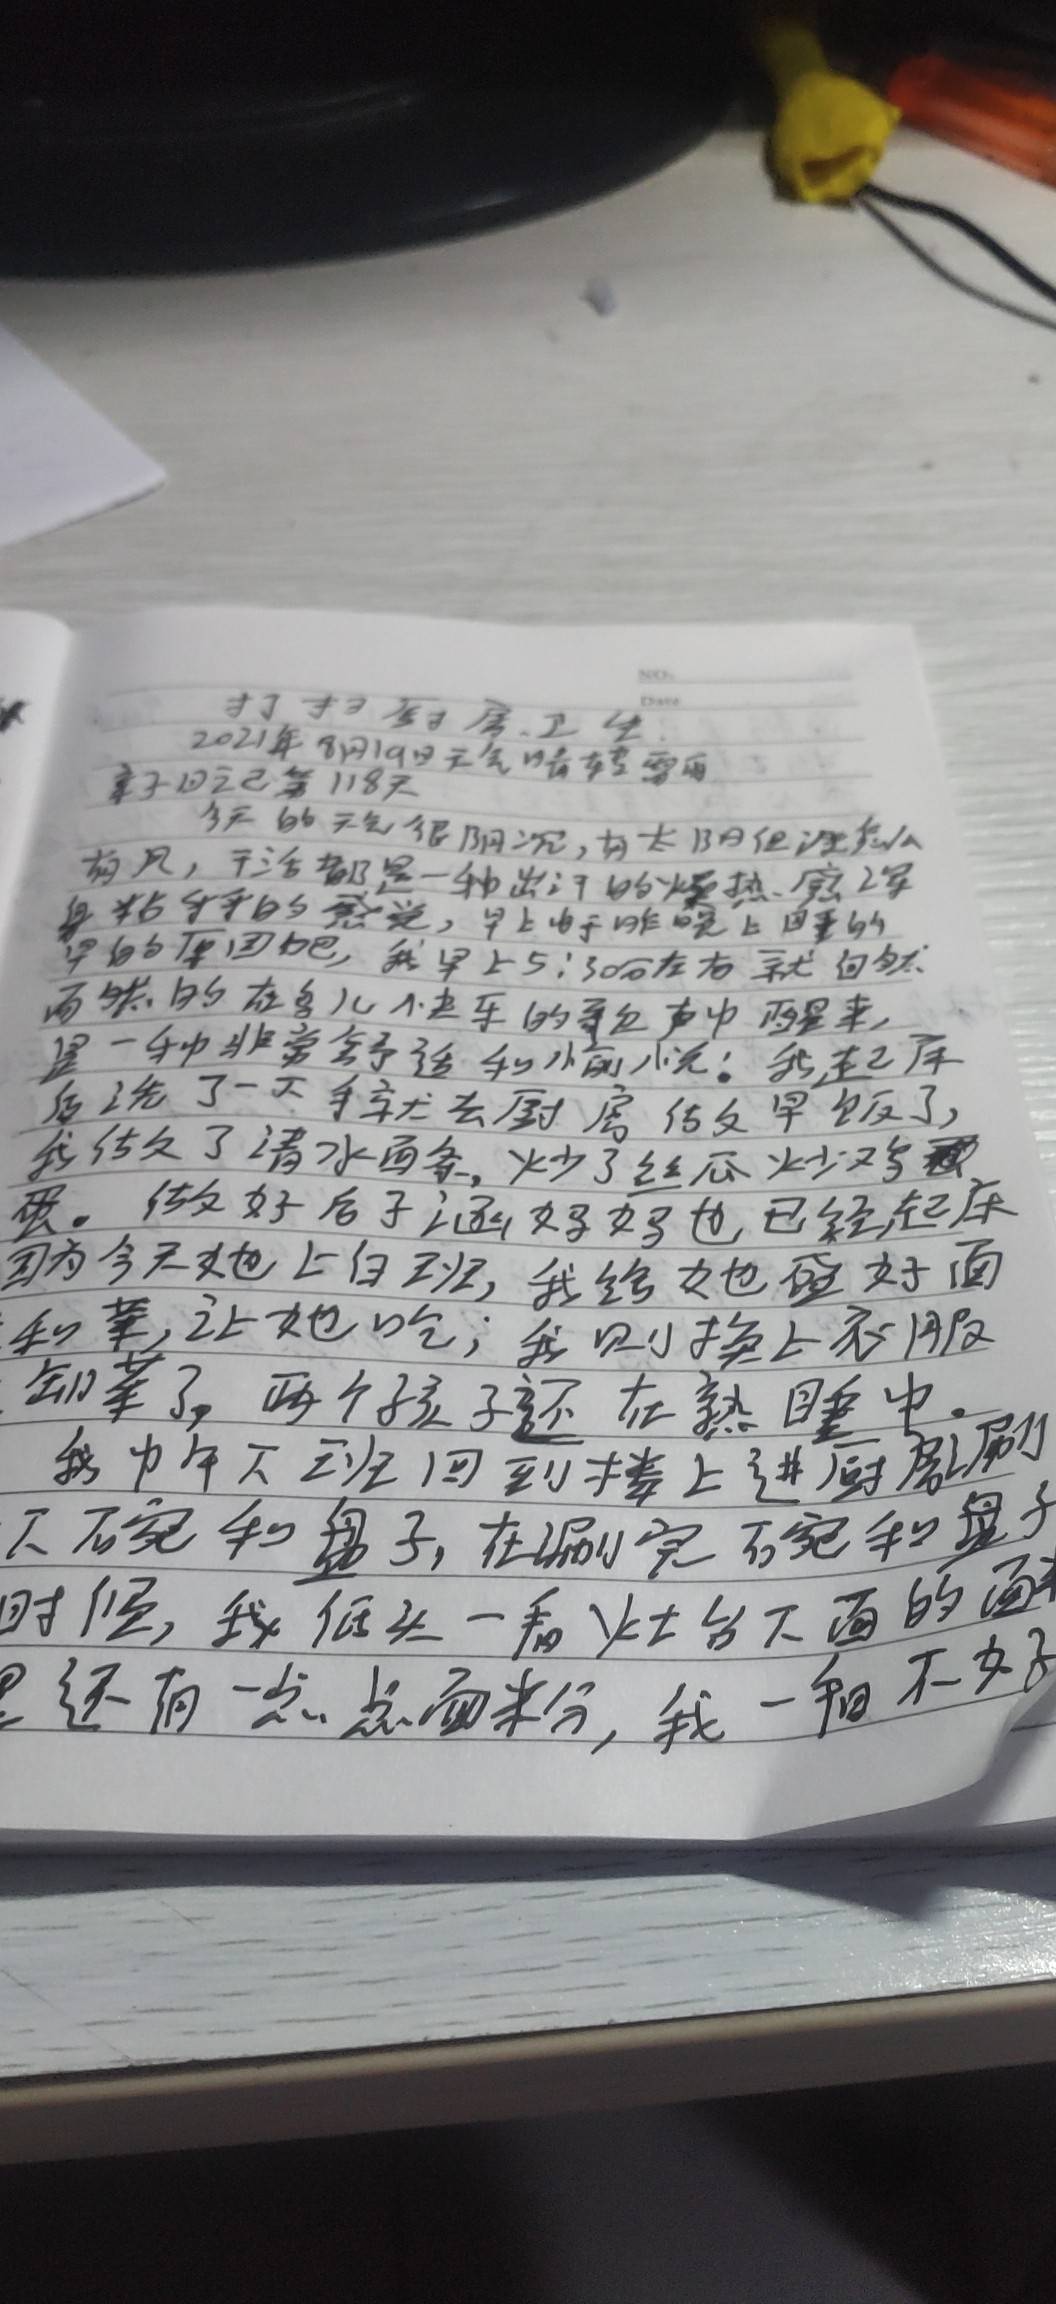 NO.
Date
打扫厨房卫生
2021年8月19日天气晴转雷雨
亲子日记第118天
今天的天气很阴沉,有太阳但没怎么
有风,干活都是一种出汗的燥热、浑
身粘糊的感觉,早上由于昨晚上睡的
早的原因吧,我早上5:30分左右就自然
而然的在鸟儿快乐的声中醒来,
是一种非常舒适和愉悦。我起床
后洗了一下手就去厨房做早饭了,
我做了清水面条,炒了丝瓜炒鸡
蛋。做好后子涵妈妈也已经起床
因为今天她上白班,我给她盛好面
和菜,让她吃;我则换上衣服
卸菜了。两个孩子还在熟睡中。
我中午下班回到楼上进厨房刷
下碗和盘子,在涮完碗和盘子
时候,我低头一看灶台下面的面
里还有一点点面粉,我一看不好